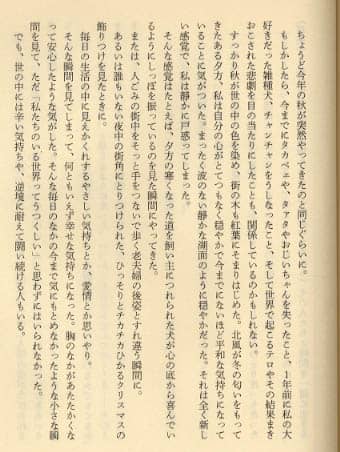 「ちょうど今年の秋が突然やってきたのと同じぐらいに。
もしかしたら、今までにメタベェや、タァタやおじいちゃんを失ったこと、1年前に私の大
好きだった雑種犬、チャンチャジをうしなったこと、そして世界で起こるテロやその結果まき
おこされた悲劇を目の当たりにしたことも、関係しているのかもしれない。
すっかり秋が世の中の色を染め、街の木も紅葉にそまりはじめた。北風が冬の匂いをもって
きたある夕方、私は自分の心がとてつもなく穏やかで今までにないほど平和な気持ちになって
いることに気がついた。まったく波のない静かな湖面のように穏やかだった。それは全く新し
い感覚で、私は静かに戸惑ってしまった。
そんな感覚はたとえば、夕方の寒くなった道を飼い主につれられた犬が心の底から喜んでい
るようにしっぽを振っているのを見た瞬間にやってきた。
または、人ごみの街中をそっと手をつないで歩く老夫婦の後姿とすれ違う瞬間に。
あるいは誰もいない夜中の街角にとりつけられた、ひっそりとチカチカひかるクリスマスの
飾りつけを見たときに。
毎日の生活の中に見えかくれするやさしい気持ちとか、愛情とか思いやり。
そんな瞬間を見てしまって、何ともいえず幸せな気持ちになった。胸のなかがあたたかくな
って安心したような気がした。そんな毎日のなかの今まで気にもとめなかったような小さな瞬
間を見て、ただ「私たちのいる世界ってうつくしい」と思わずにはいられなかった。
でも、世の中には辛い気持ちや、逆境に耐えて闘い続ける人もいる。